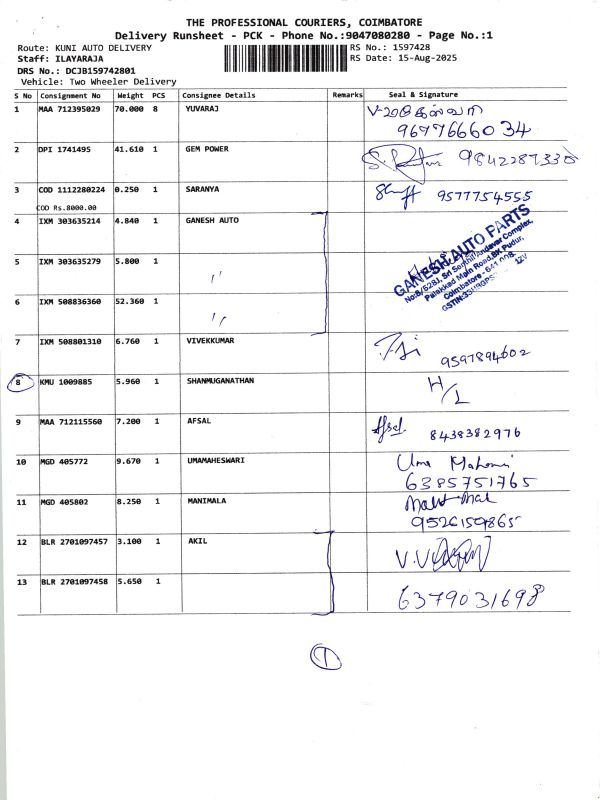 THE PROFESSIONAL COURIERS, COIMBATORE
Delivery Runsheet - PCK - Phone No.:9047080280 - Page No.:1
Route: KUNI AUTO DELIVERY
Staff: ILAYARAJA
DRS No.: DCJB159742801
Vehicle: Two Wheeler Delivery
RS No.: 1597428
RS Date: 15-Aug-2025
S No Consignment No Weight PCS Consignee Details Remarks Seal & Signature
1 MAA 712395029 70.000 8 YUVARAJ
9677666034
2 DPI 1741495 41.610 1 GEM POWER 9842287330
3 COD 1112280224 0.250 1 SARANYA 9577754555
COD Rs.8000.00
4 IXM 303635214 4.840 1 GANESH AUTO
5 IXM 303635279 5.800 1 〃
6 IXM 508836360 52.360 1 〃
GANESH AUTO PARTS
Palakkad Main Road, BK Pudur,
7 IXM 508801310 6.760 1 VIVEKKUMAR
9597894602
8 KMU 1009885 5.960 1 SHANMUGANATHAN H/L
9 MAA 712115560 7.200 1 AFSAL Afsal 8438382976
10 MGD 405772 9.670 1 UMAMAHESWARI Uma
6385751765
11 MGD 405802 8.250 1 MANIMALA
9526159865
12 BLR 2701097457 3.100 1 AKIL
13 BLR 2701097458 5.650 1
6379031698
1